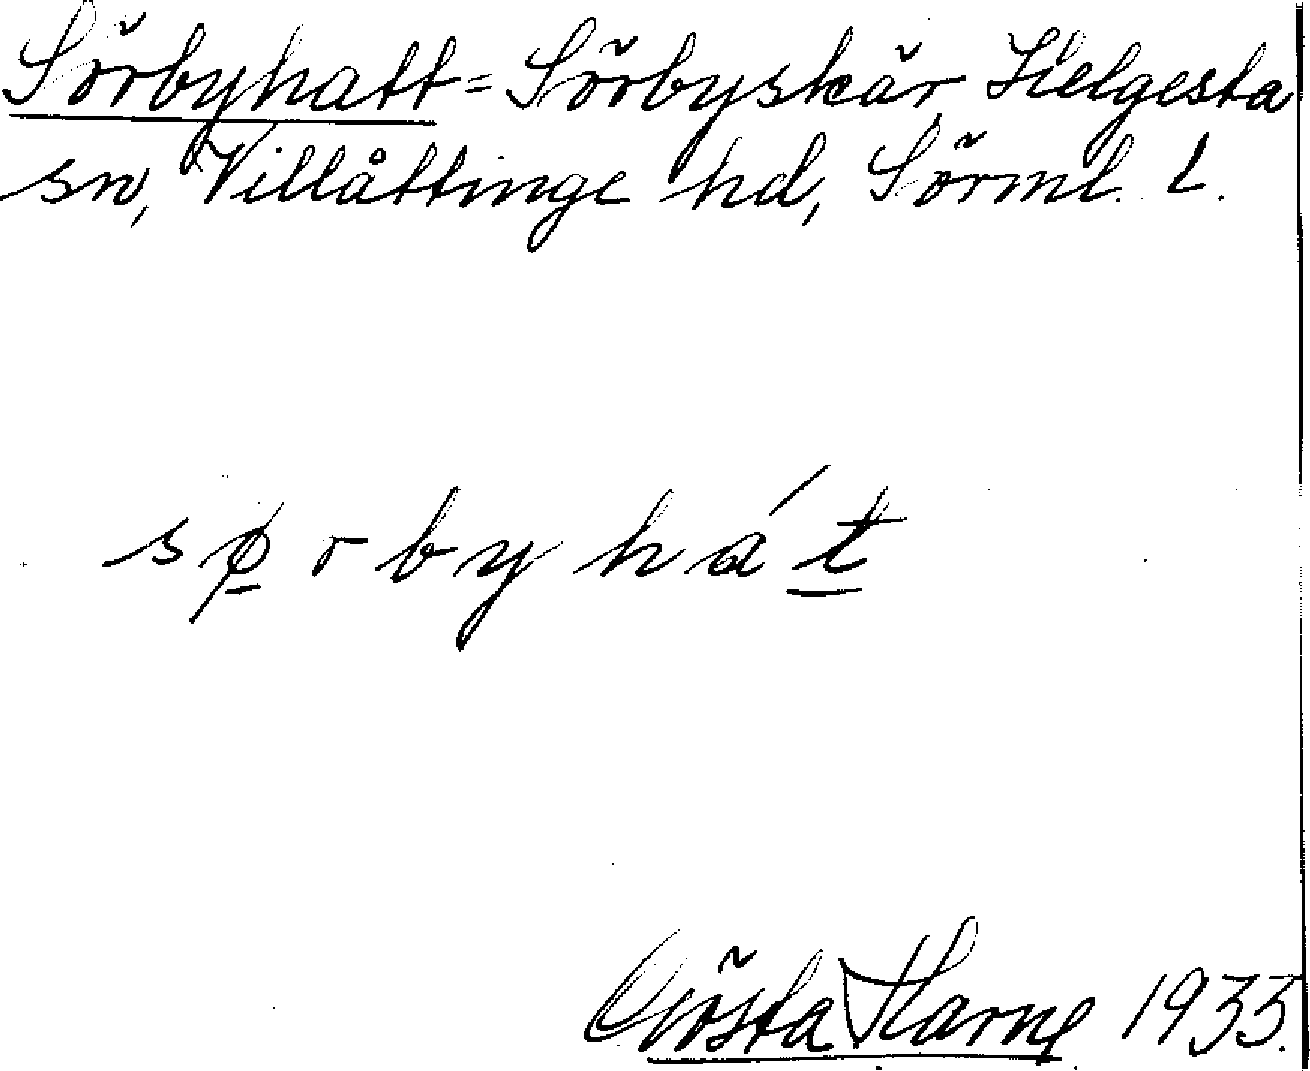 Sörbyhatt = Sörbyskär Helgesta
sn, Villåttinge hd, Sörml. L.
sø̱rbyhát̲
Gösta Harne 1933.